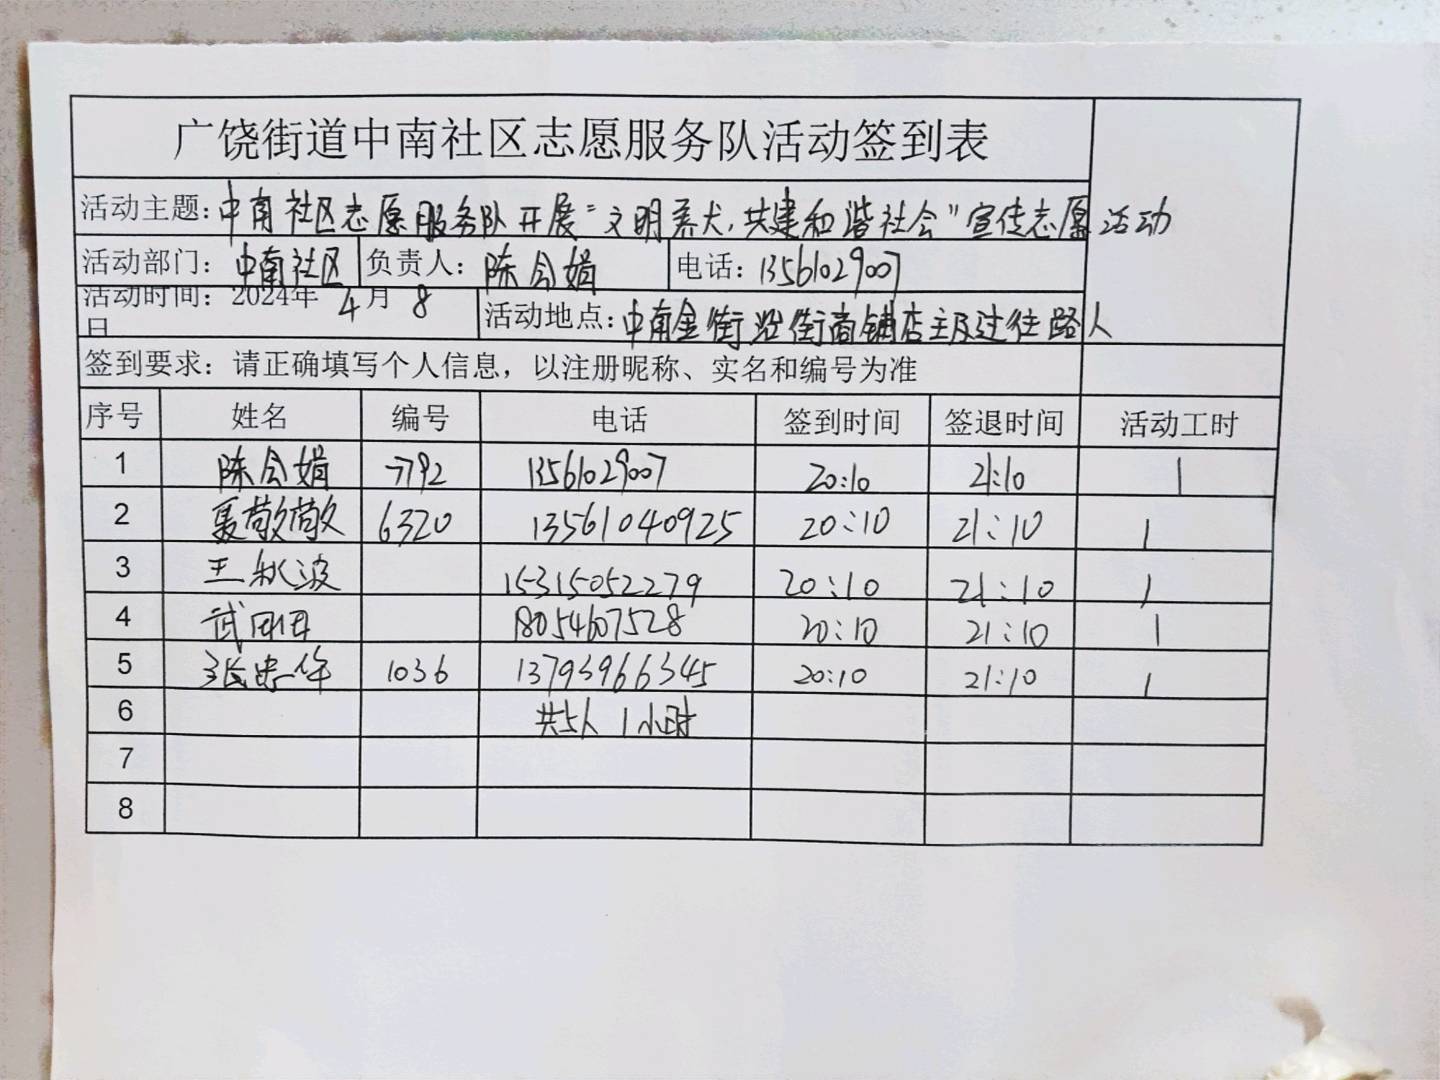 广饶街道中南社区志愿服务队活动签到表
活动主题：中南社区志愿服务队开展“文明养犬，共建和谐社会”宣传志愿活动
活动部门：中南社区 负责人：陈会娟 电话：13561029007
活动时间：2024年4月8日 活动地点：中南金街沿街商铺店主及过往路人
签到要求：请正确填写个人信息，以注册昵称、实名和编号为准
序号 姓名 编号 电话 签到时间 签退时间 活动工时
1 陈会娟 7792 13561029007 20:10 21:10 1
2 聂敬敬 6320 13561040925 20:10 21:10 1
3 王秋波 15315052279 20:10 21:10 1
4 武 18054607528 20:10 21:10 1
5 张忠华 1036 13793966345 20:10 21:10 1
6 共5人 1小时
7
8